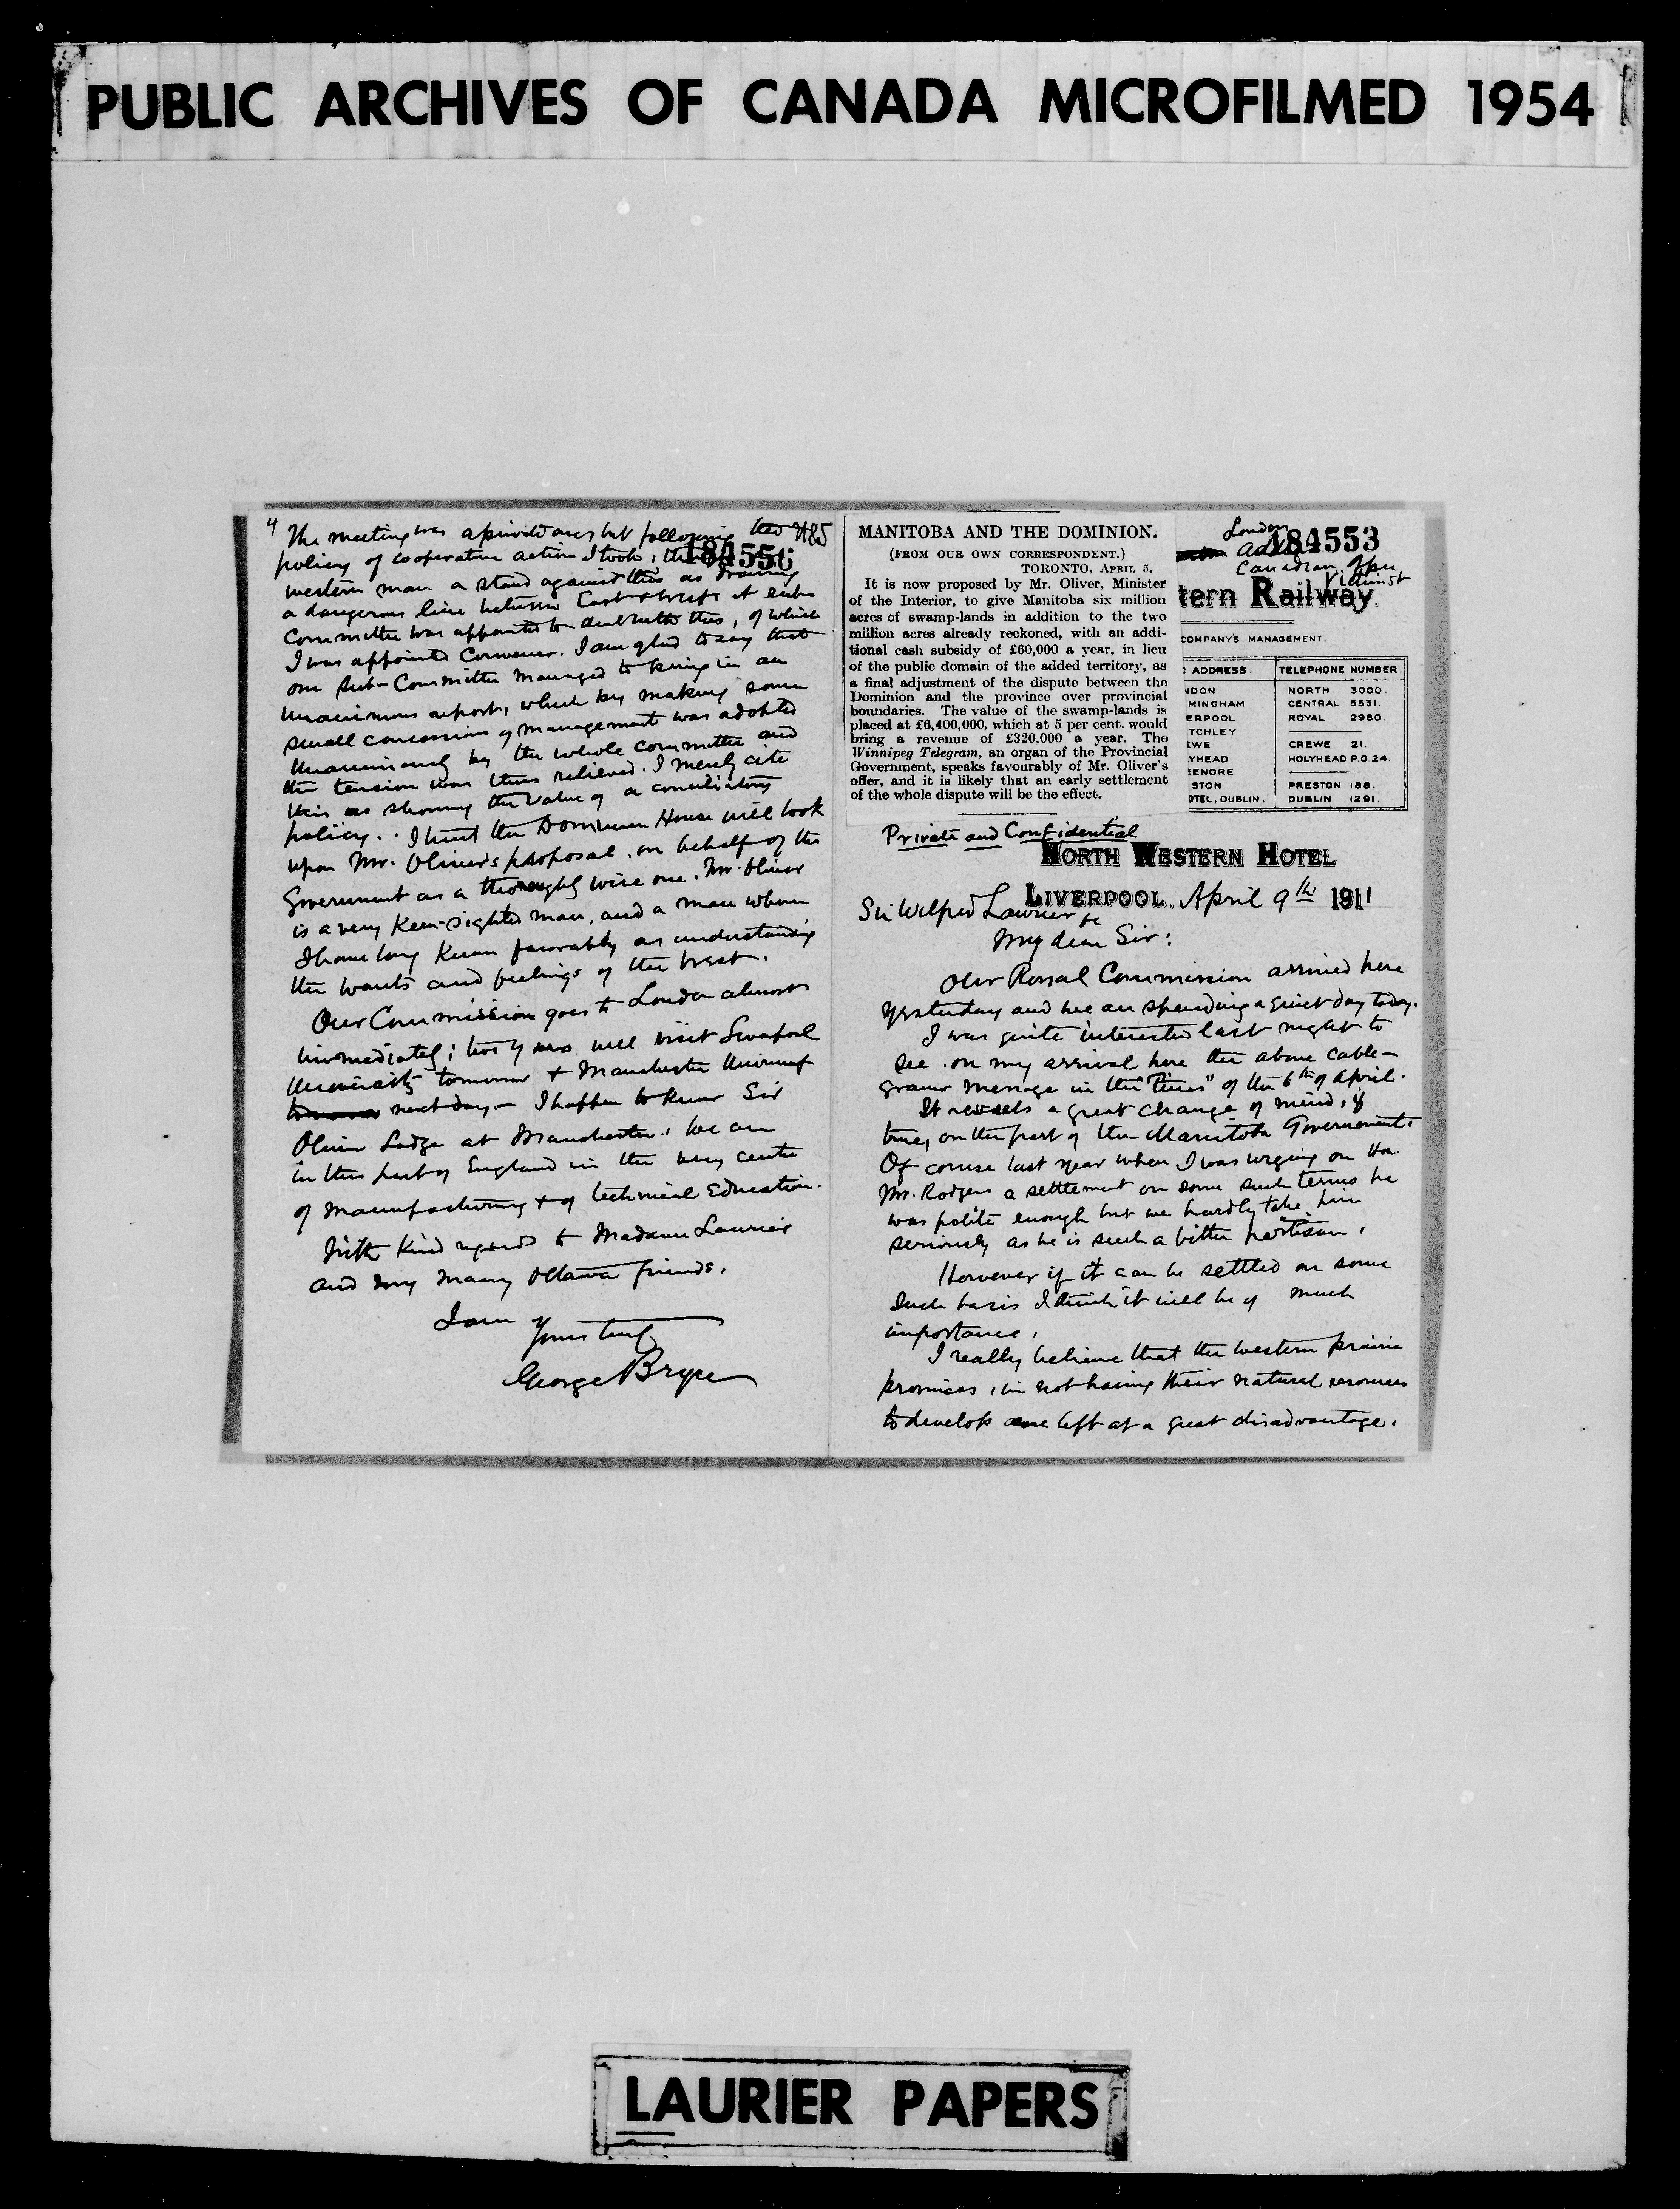 PUBLIC ARCHIVES OF CANADA MICROFILMED 1954
4
The meeting was a private one, but following the
policy of cooperative action I took,
184556
western man a stand against this as drawing
a dangerous line between East & West. A sub-
Committee was appointed to deal with this, of which
I was appointed Convener. I am glad to say that
our Sub-Committee managed to bring in an
unanimous report, which by making some
small concessions of management was adopted
unanimously by the whole committee and
the tension was thus relieved. I merely cite
this as showing the value of a conciliatory
policy. I trust the Dominion House will look
upon Mr. Oliver's proposal, on behalf of the
Government as a thoroughly wise one. Mr. Oliver
is a very Keen-sighted man, and a man whom
I have long Known favorably as understanding
the wants and feelings of the West.
Our Commission goes to London almost
immediately; two of us will visit Liverpool
University tomorrow & Manchester
next day. – I happen to know Sir
Oliver Lodge at Manchester. We are
in this part of England in the very centre
of manufacturing & of technical Education.
With Kind regards to Madame Laurier
and my many Ottawa friends,
I am
Yours truly
George Bryce
MANITOBA AND THE DOMINION.
(FROM OUR OWN CORRESPONDENT.)
TORONTO, APRIL 5.
It is now proposed by Mr. Oliver, Minister
of the Interior, to give Manitoba six million
acres of swamp-lands in addition to the two
million acres already reckoned, with an addi-
tional cash subsidy of £60,000 a year, in lieu
of the public domain of the added territory, as
a final adjustment of the dispute between the
Dominion and the province over provincial
boundaries. The value of the swamp-lands is
placed at £6,400,000, which at 5 per cent. would
bring a revenue of £320,000 a year. The
Winnipeg Telegram, an organ of the Provincial
Government, speaks favourably of Mr. Oliver's
offer, and it is likely that an early settlement
of the whole dispute will be the effect.
London
184553
Canadian
tern Railway.
COMPANY'S MANAGEMENT.
ADDRESS. TELEPHONE NUMBER
NDON NORTH 3000.
MINGHAM CENTRAL 5531.
ERPOOL ROYAL 2960.
TCHLEY
EWE CREWE 21.
YHEAD HOLYHEAD P.O. 24.
EENORE
STON PRESTON 188.
OTEL, DUBLIN. DUBLIN 1291.
Private and Confidential
NORTH WESTERN HOTEL
LIVERPOOL, April 9th 1911
Sir Wilfred Laurier
My dear Sir:
Our Royal Commission arrived here
yesterday and we are spending a quiet day today.
I was quite interested last night to
see on my arrival here the above cable-
gram message in the "Times" of the 6th of April.
It reveals a great change of mind, if
true, on the part of the Manitoba Government.
Of course last year when I was urging on Hon.
Mr. Rodgers a settlement on some such terms he
was polite enough but we hardly take him
seriously as he is such a bitter partisan.
However if it can be settled on some
such basis I think it will be of much
importance.
I really believe that the western prairie
provinces, in not having their natural resources
to develop are left at a great disadvantage.
LAURIER PAPERS